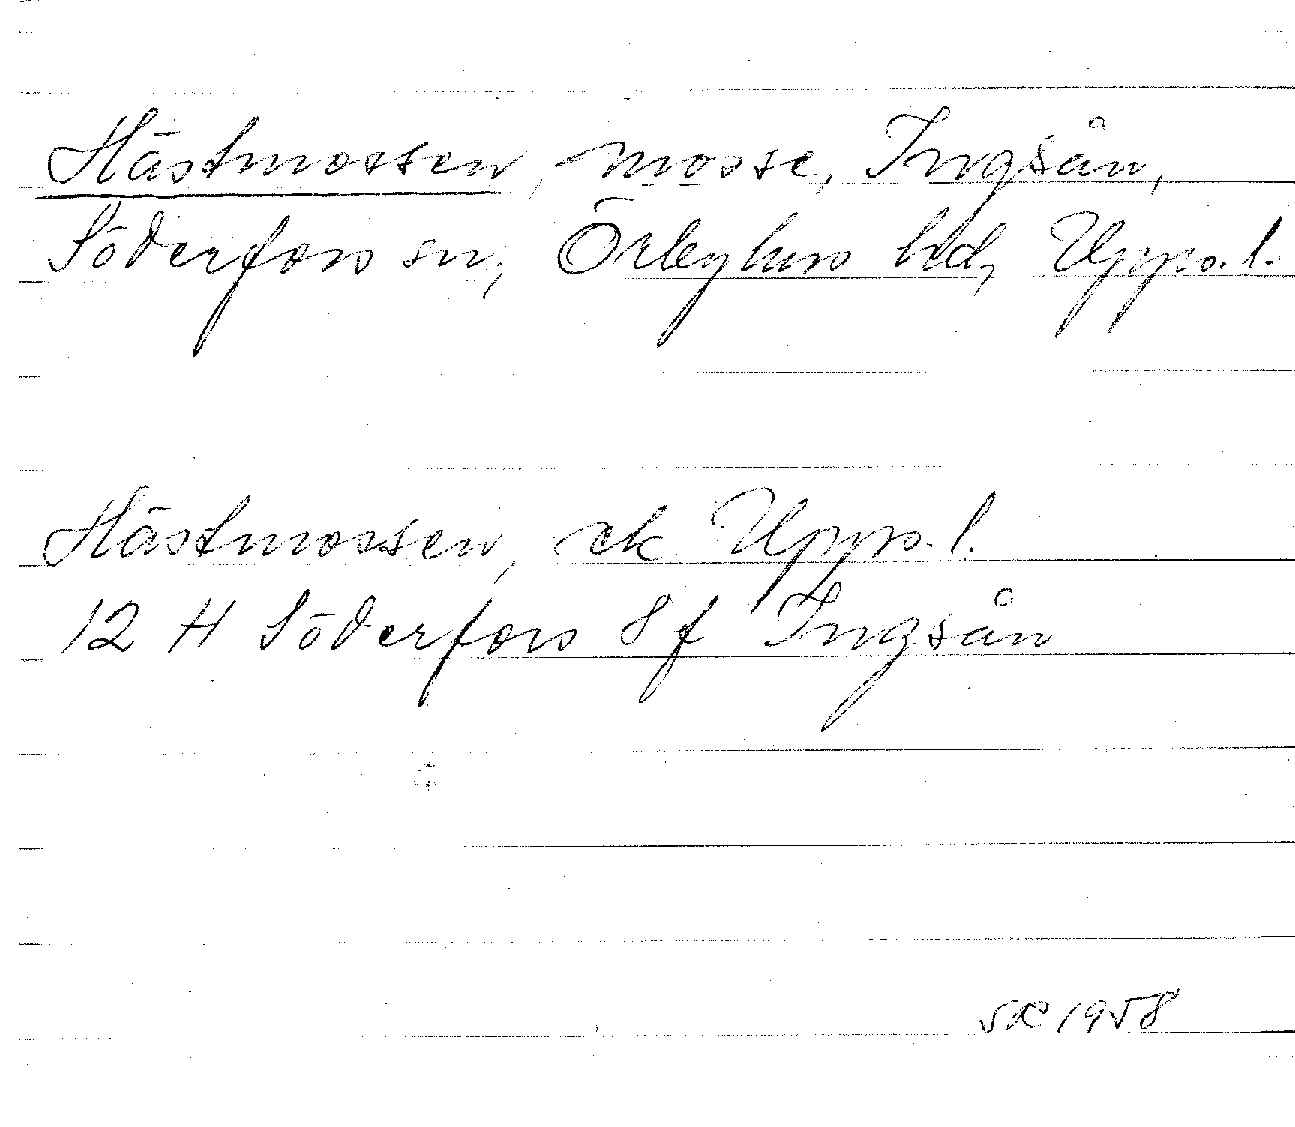 Hästmossen, mosse, Ingsån,
Söderfors sn, Örbyhus hd, Upps. l.
Hästmossen, ek Upps. l.
12 H Söderfors 8f Ingsån
1958